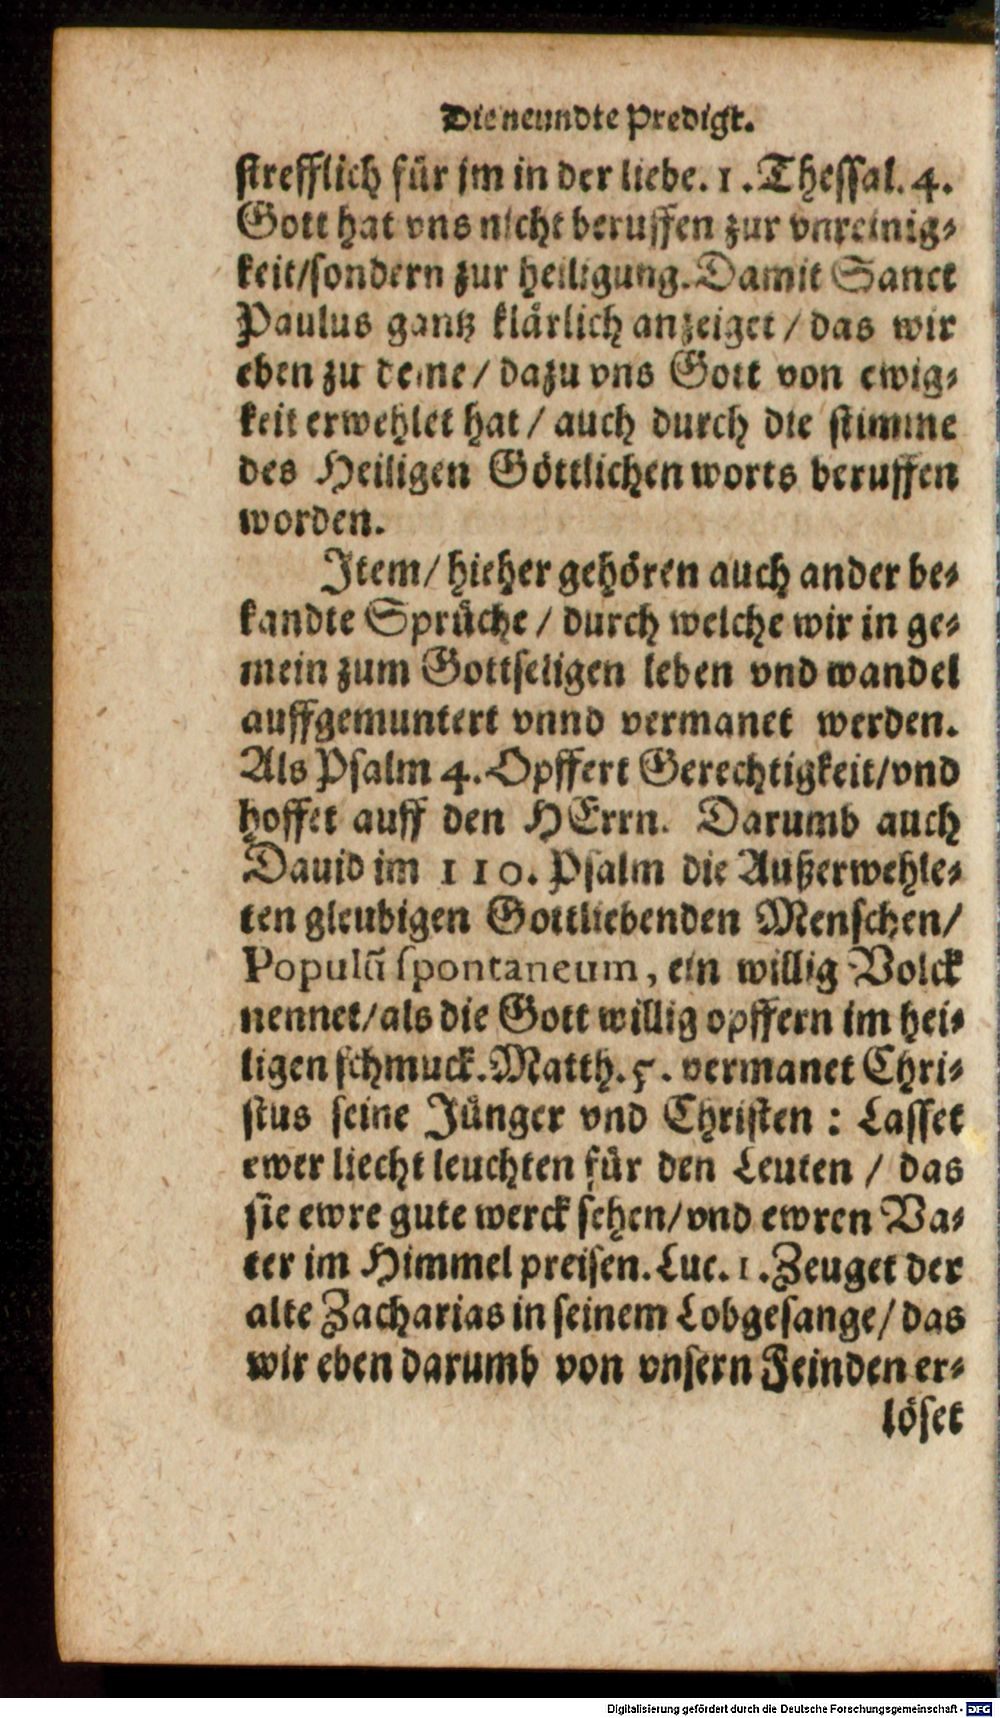 Die neundte Predigt.
strefflich für jm in der liebe. 1. Thessal. 4.
Gott hat vns nicht beruffen zur vnreinig⸗
keit/sondern zur heiligung. Damit Sanct
Paulus gantz klärlich anzeiget / das wir
eben zu deme / dazu vns Gott von ewig⸗
keit erwehlet hat / auch durch die stimme
des Heiligen Göttlichen worts beruffen
worden.
Item/ hieher gehören auch ander be⸗
kandte Sprüche / durch welche wir in ge⸗
mein zum Gottseligen leben vnd wandel
auffgemuntert vnnd vermanet werden.
Als Psalm 4. Opffert Gerechtigkeit/vnd
hoffet auff den HErrn. Darumb auch
Dauid im 110. Psalm die Außerwehle⸗
ten gleubigen Gottliebenden Menschen/
Populū spontaneum, ein willig Volck
nennet/als die Gott willig opffern im hei⸗
ligen schmuck. Matth. 5. vermanet Chri⸗
stus seine Jünger vnd Christen : Lasset
ewer liecht leuchten für den Leuten / das
sie ewre gute werck sehen/vnd ewren Va⸗
ter im Himmel preisen. Luc. 1. Zeuget der
alte Zacharias in seinem Lobgesange/ das
wir eben darumb von vnsern Feinden er⸗
löset
Digitalisierung gefördert durch die Deutsche Forschungsgemeinschaft - DFG